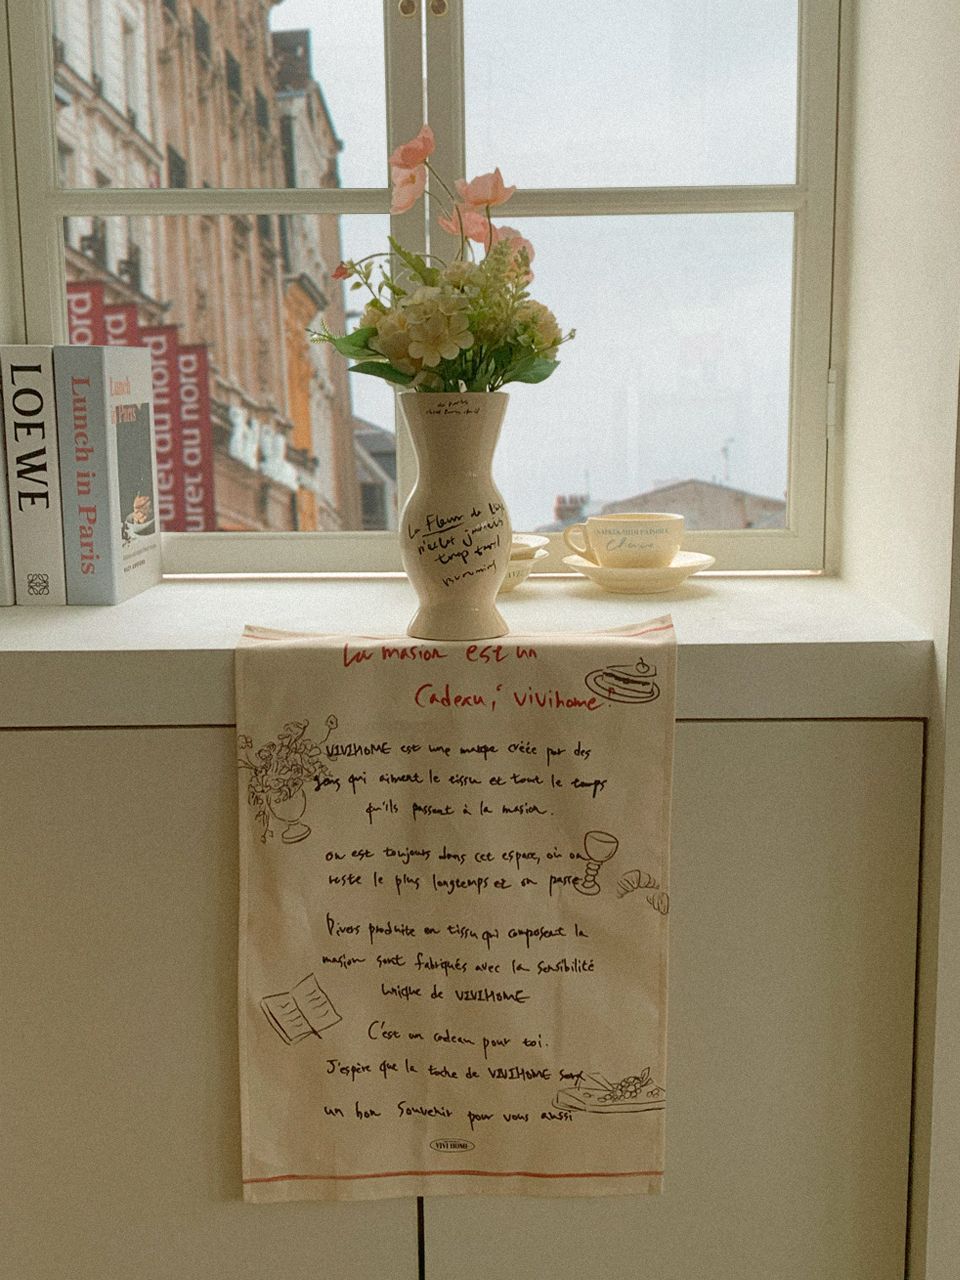 uret au nord
uret au nord
LOEWE
Lunch in Paris
Lunch
in Paris
La Fleur de
n'est jamais
trop tard
La masion est un
Cadeau; vivihome.
VIVIHOME est une marpe créée par des
gens qui aiment le tissu et tout le temps
qu'ils passent à la masion.
on est toujours dans cet espace, où on
reste le plus longtemps et on passe
Divers produite en tissu qui composent la
masion sont fabriqués avec la sensibilité
unique de VIVIHOME
C'est un cadeau pour toi.
J'espère que la toche de VIVIHOME soit
un bon souvenir pour vous aussi
VIVI HOME